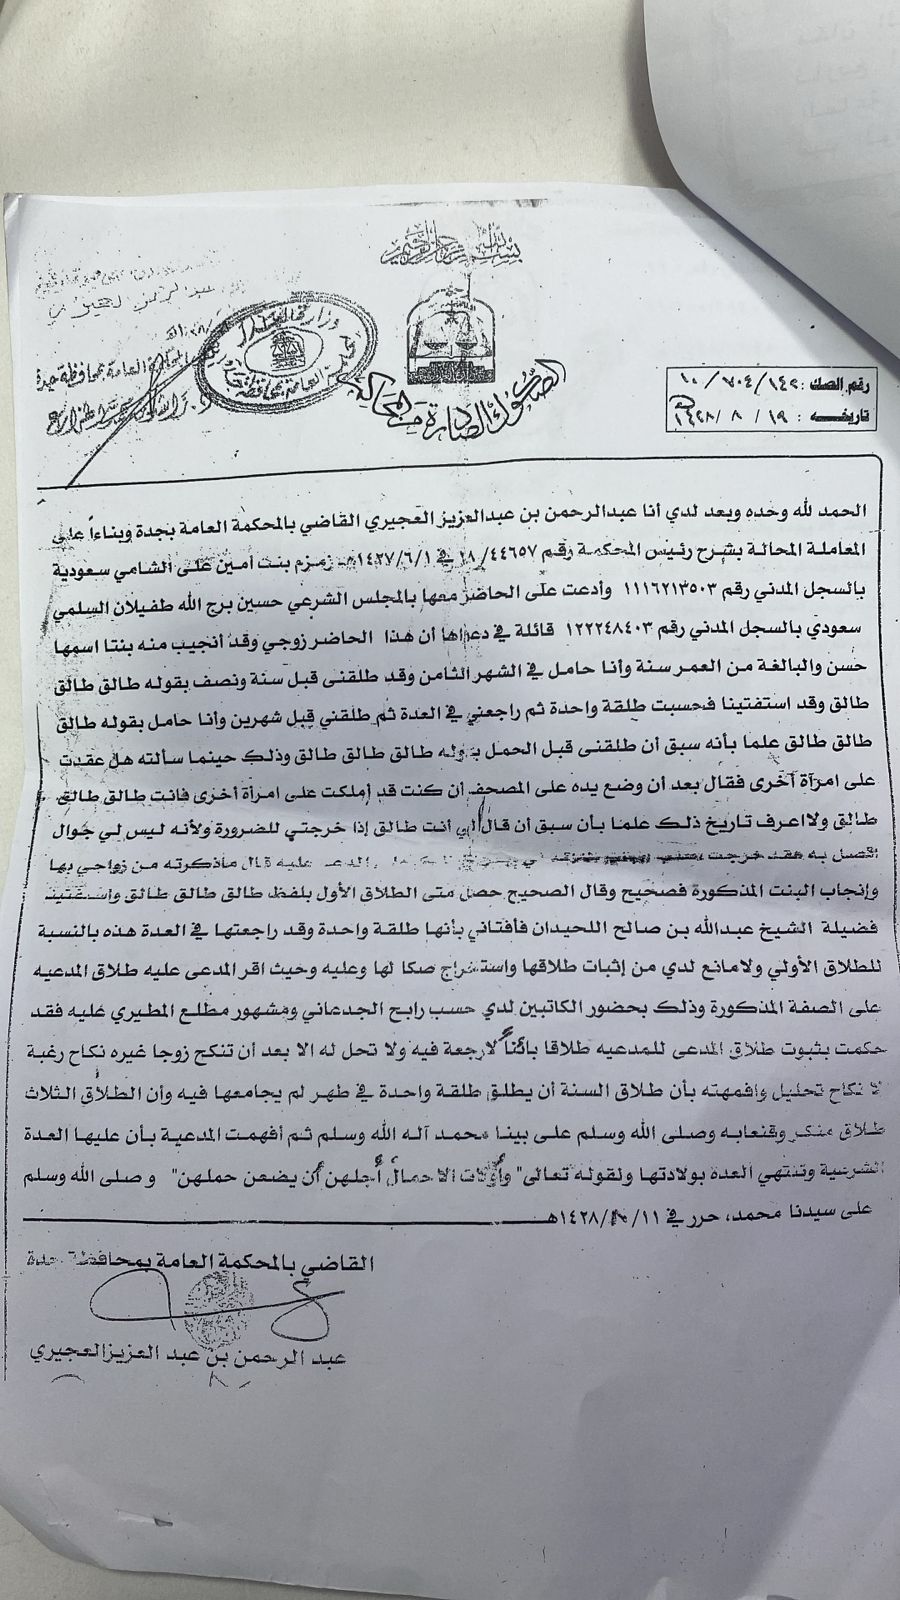 بسم الله الرحمن الرحيم
وزارة العدل
المحكمة العامة بمحافظة جدة
الصكوك الصادرة من المحاكم
رقم الصك : ١٠/٧٠٤/١٤٢
تاريخه : ١٤٢٨/٨/١٩هـ
العامة بمحافظة جدة
الحمد لله وحده وبعد لدي أنا عبدالرحمن بن عبدالعزيز العجيري القاضي بالمحكمة العامة بجدة وبناءاً على
المعاملة المحالة بشرح رئيس المحكمة رقم ١٨/٤٤٦٥٧ في ١٤٢٧/٦/١هـ زمزم بنت أمين على الشامي سعودية
بالسجل المدني رقم ١١١٦٢١٣٥٠٣ وأدعت على الحاضر معها بالمجلس الشرعي حسين برج الله طفيلان السلمي
سعودي بالسجل المدني رقم ١٢٢٢٤٨٤٠٣ قائلة في دعواها أن هذا الحاضر زوجي وقد أنجيب منه بنتا اسمها
حسن والبالغة من العمر سنة وأنا حامل في الشهر الثامن وقد طلقنى قبل سنة ونصف بقوله طالق طالق
طالق وقد استفتينا فحسبت طلقة واحدة ثم راجعني في العدة ثم طلقني قبل شهرين وأنا حامل بقوله طالق
طالق طالق علما بأنه سبق أن طلقنى قبل الحمل بقوله طالق طالق طالق وذلك حينما سألته هل عقدت
على امرأة أخرى فقال بعد أن وضع يده على المصحف أن كنت قد أملكت على امرأة أخرى فانت طالق طالق
طالق ولااعرف تاريخ ذلك علما بأن سبق أن قال لي أنت طالق إذا خرجتي للضرورة ولأنه ليس لي جوال
اتصل به فقد خرجت المدعى عليه قال ماذكرته من زواجي بها
وإنجاب البنت المذكورة فصحيح وقال الصحيح حصل متى الطلاق الأول بلفظ طالق طالق طالق واستفتيت
فضيلة الشيخ عبدالله بن صالح اللحيدان فأفتاني بأنها طلقة واحدة وقد راجعتها في العدة هذه بالنسبة
للطلاق الأولي ولامانع لدي من إثبات طلاقها واستخراج صكا لها وعليه وحيث اقر المدعى عليه طلاق المدعيه
على الصفة المذكورة وذلك بحضور الكاتبين لدي حسب رابح الجدعاني ومشهور مطلع المطيري عليه فقد
حكمت بثبوت طلاق المدعى للمدعيه طلاقا بائناً لارجعة فيه ولا تحل له الا بعد أن تنكح زوجا غيره نكاح رغبة
لا نكاح تحليل وافهمته بأن طلاق السنة أن يطلق طلقة واحدة في طهر لم يجامعها فيه وأن الطلاق الثلاث
طلاق منكر وقنعابه وصلى الله وسلم على بينا محمد آله الله وسلم ثم أفهمت المدعية بأن عليها العدة
الشرعية وتنتهي العدة بولادتها ولقوله تعالى" وأولات الاحمال أجلهن أن يضعن حملهن" و صلى الله وسلم
على سيدنا محمد، حرر في ١٤٢٨/٨/١١هـ
القاضي بالمحكمة العامة بمحافظة جدة
عبد الرحمن بن عبد العزيزالعجيري